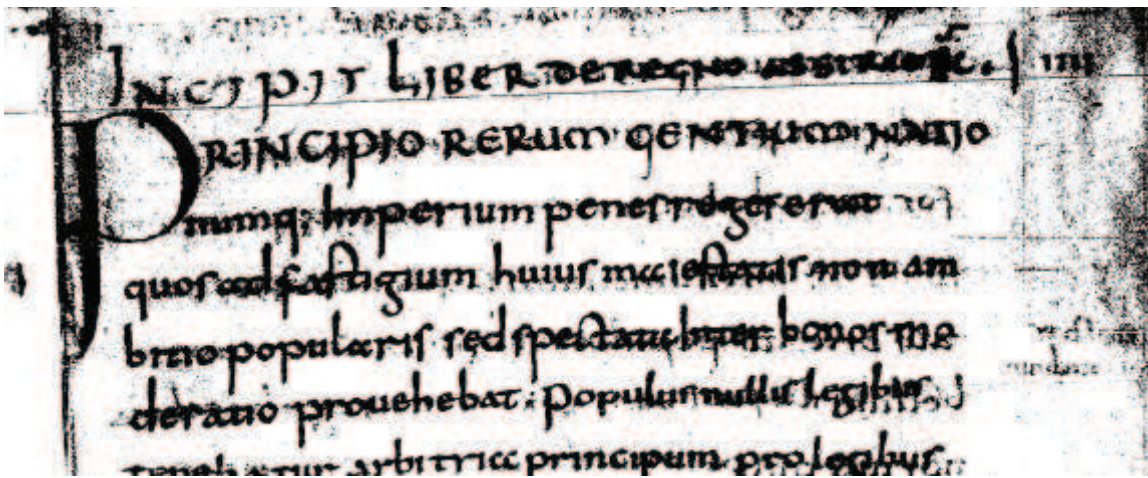 INCIPIT LIBER DE REGNO
PRINCIPIO RERUM GENTIUM NATIO
numq; Imperium penes reges erat
quos ad fastigium huius maiestatis non am
bitio popularis sed spectata inter bonos mo
deratio provehebat. Populus nullis legibus
tenebatur arbitria principum pro legibus